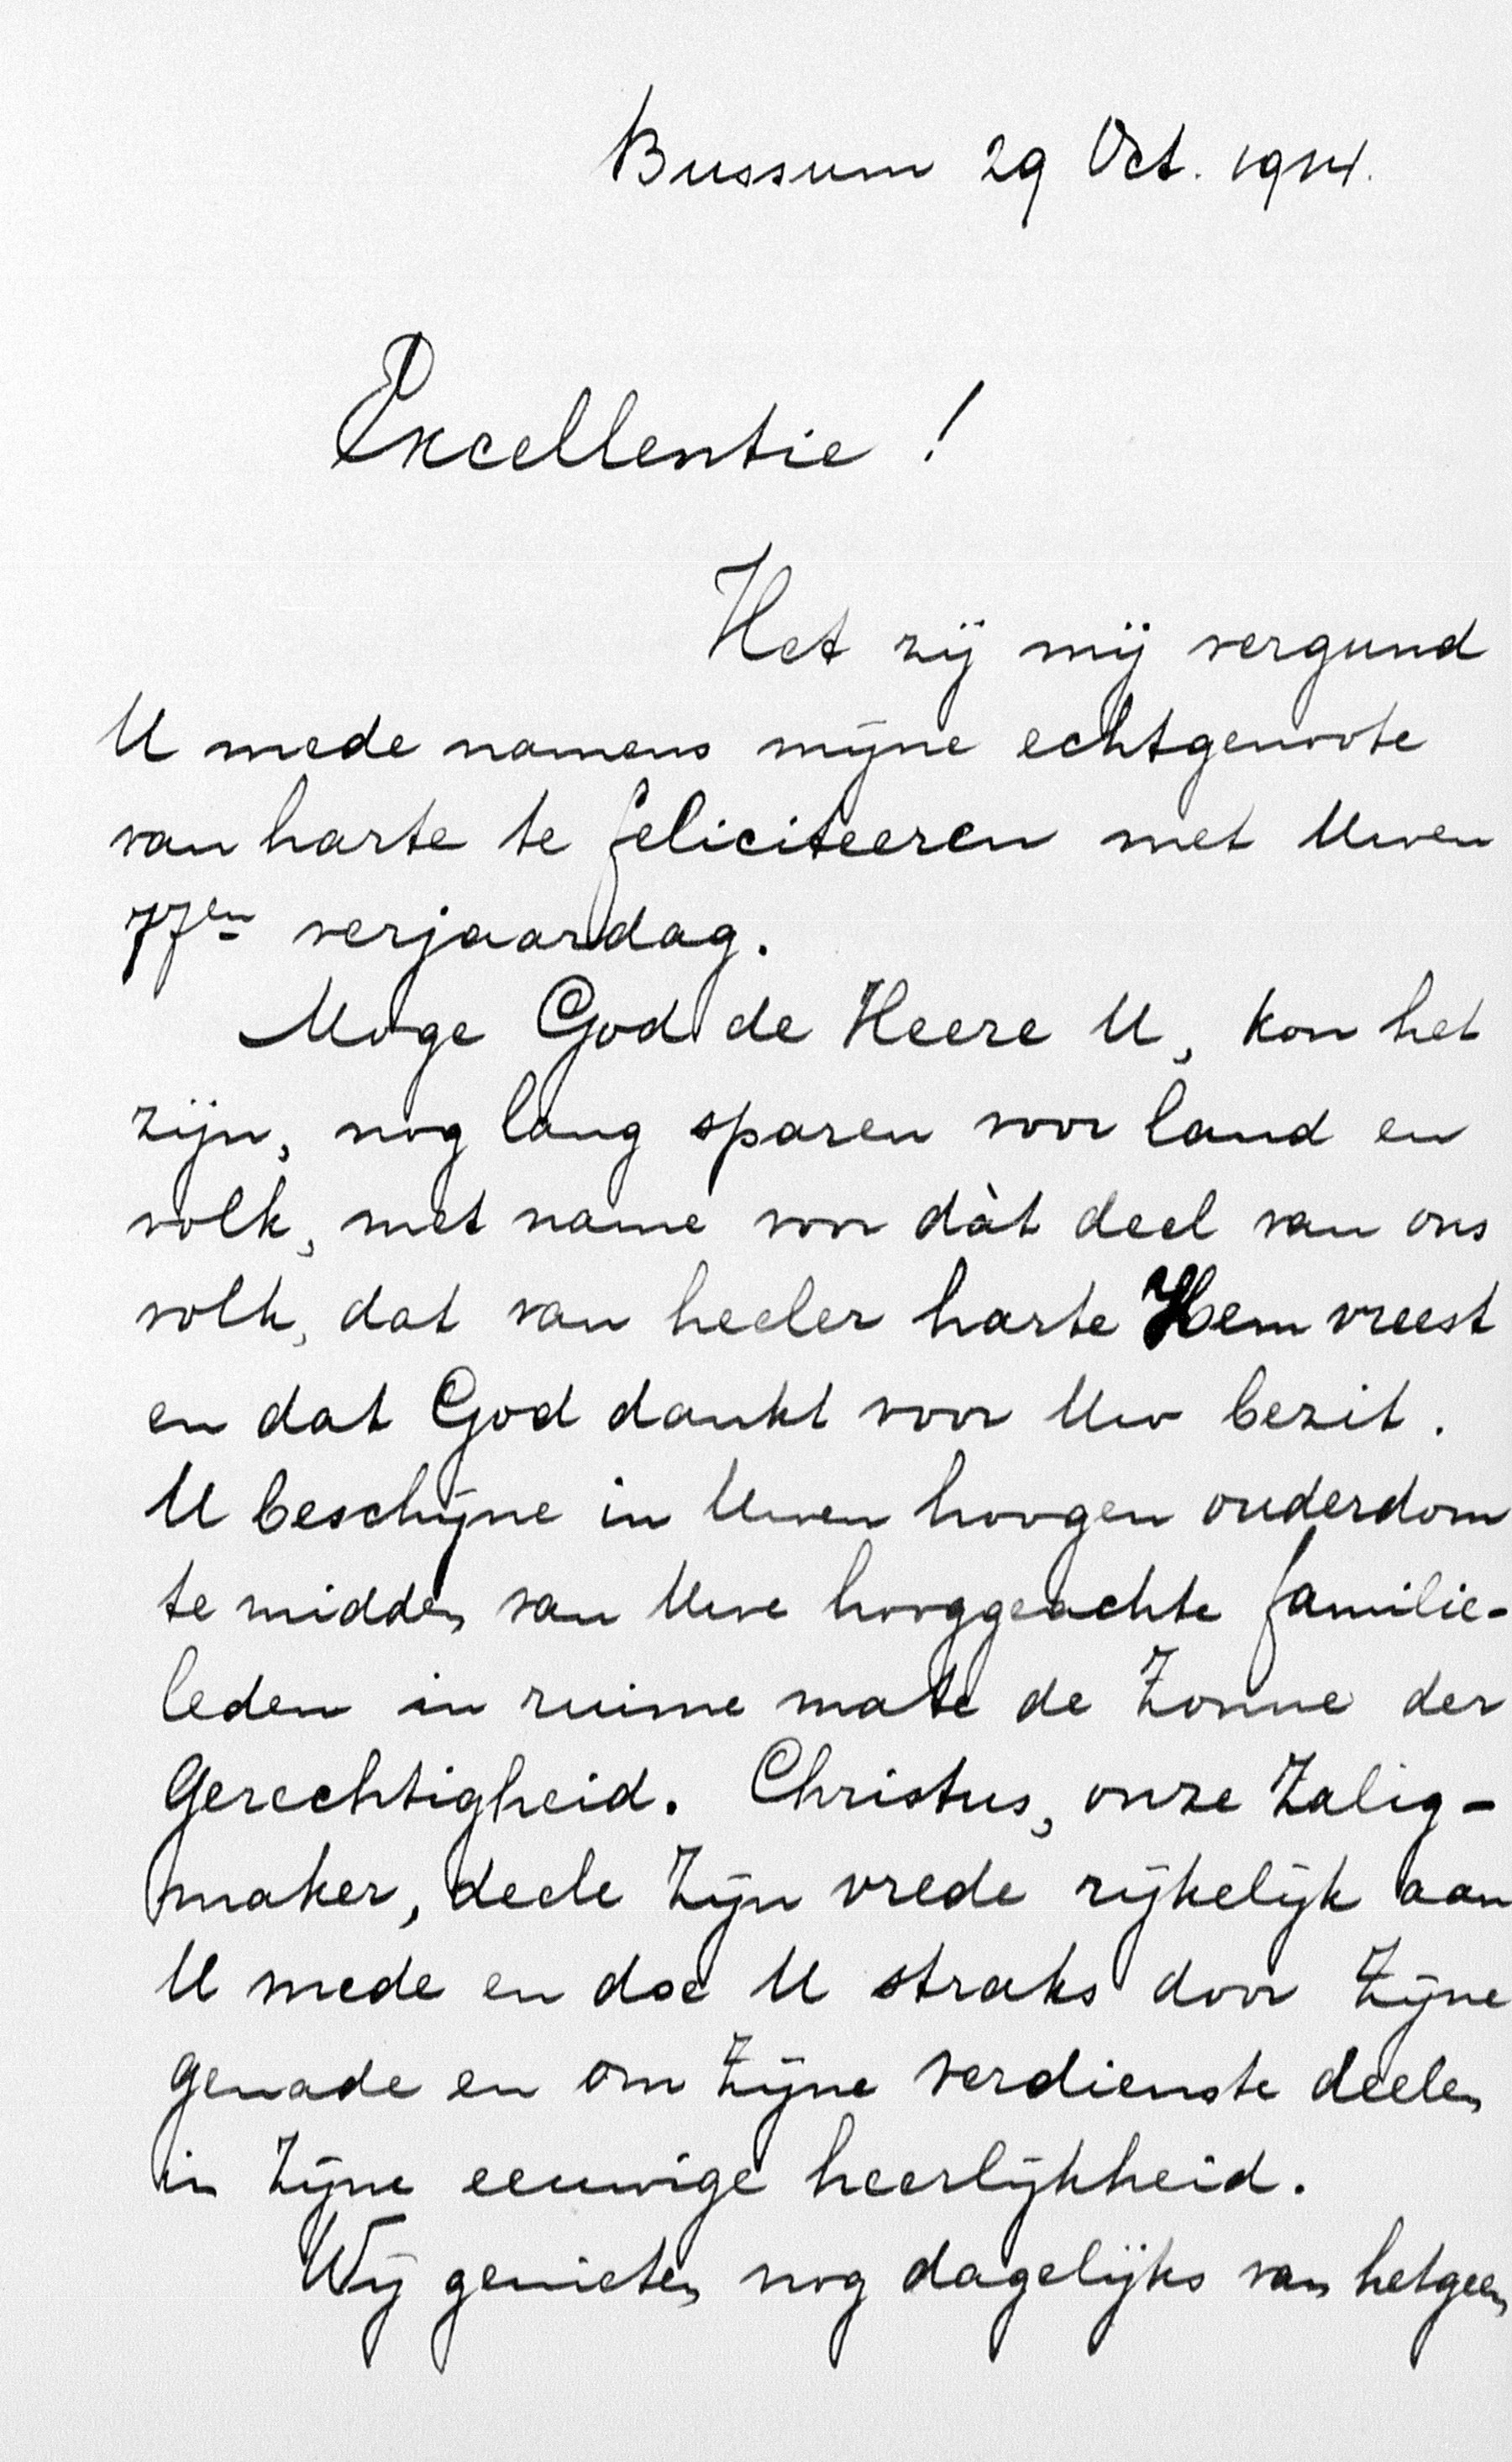 Bussum 29 Oct. 1914.
Excellentie !
Het zij mij vergund
U mede namens mijne echtgenoote
van harte te feliciteeren met Uwen
77en verjaardag.
Moge God de Heere U, kon het
zijn, nog lang sparen voor land en
volk, met name voor dàt deel van ons
volk, dat van heeler harte Hem vreest
en dat God dankt voor Uw bezit.
U beschijne in Uwen hoogen ouderdom
te midden van Uwe hooggeachte familie-
leden in ruime mate de Zonne der
Gerechtigheid. Christus, onze Zalig-
maker, deele Zijn vrede rijkelijk aan
U mede en doe U straks door Zijne
genade en om Zijne verdienste deelen
in Zijne eeuwige heerlijkheid.
Wij genieten nog dagelijks van hetgeen